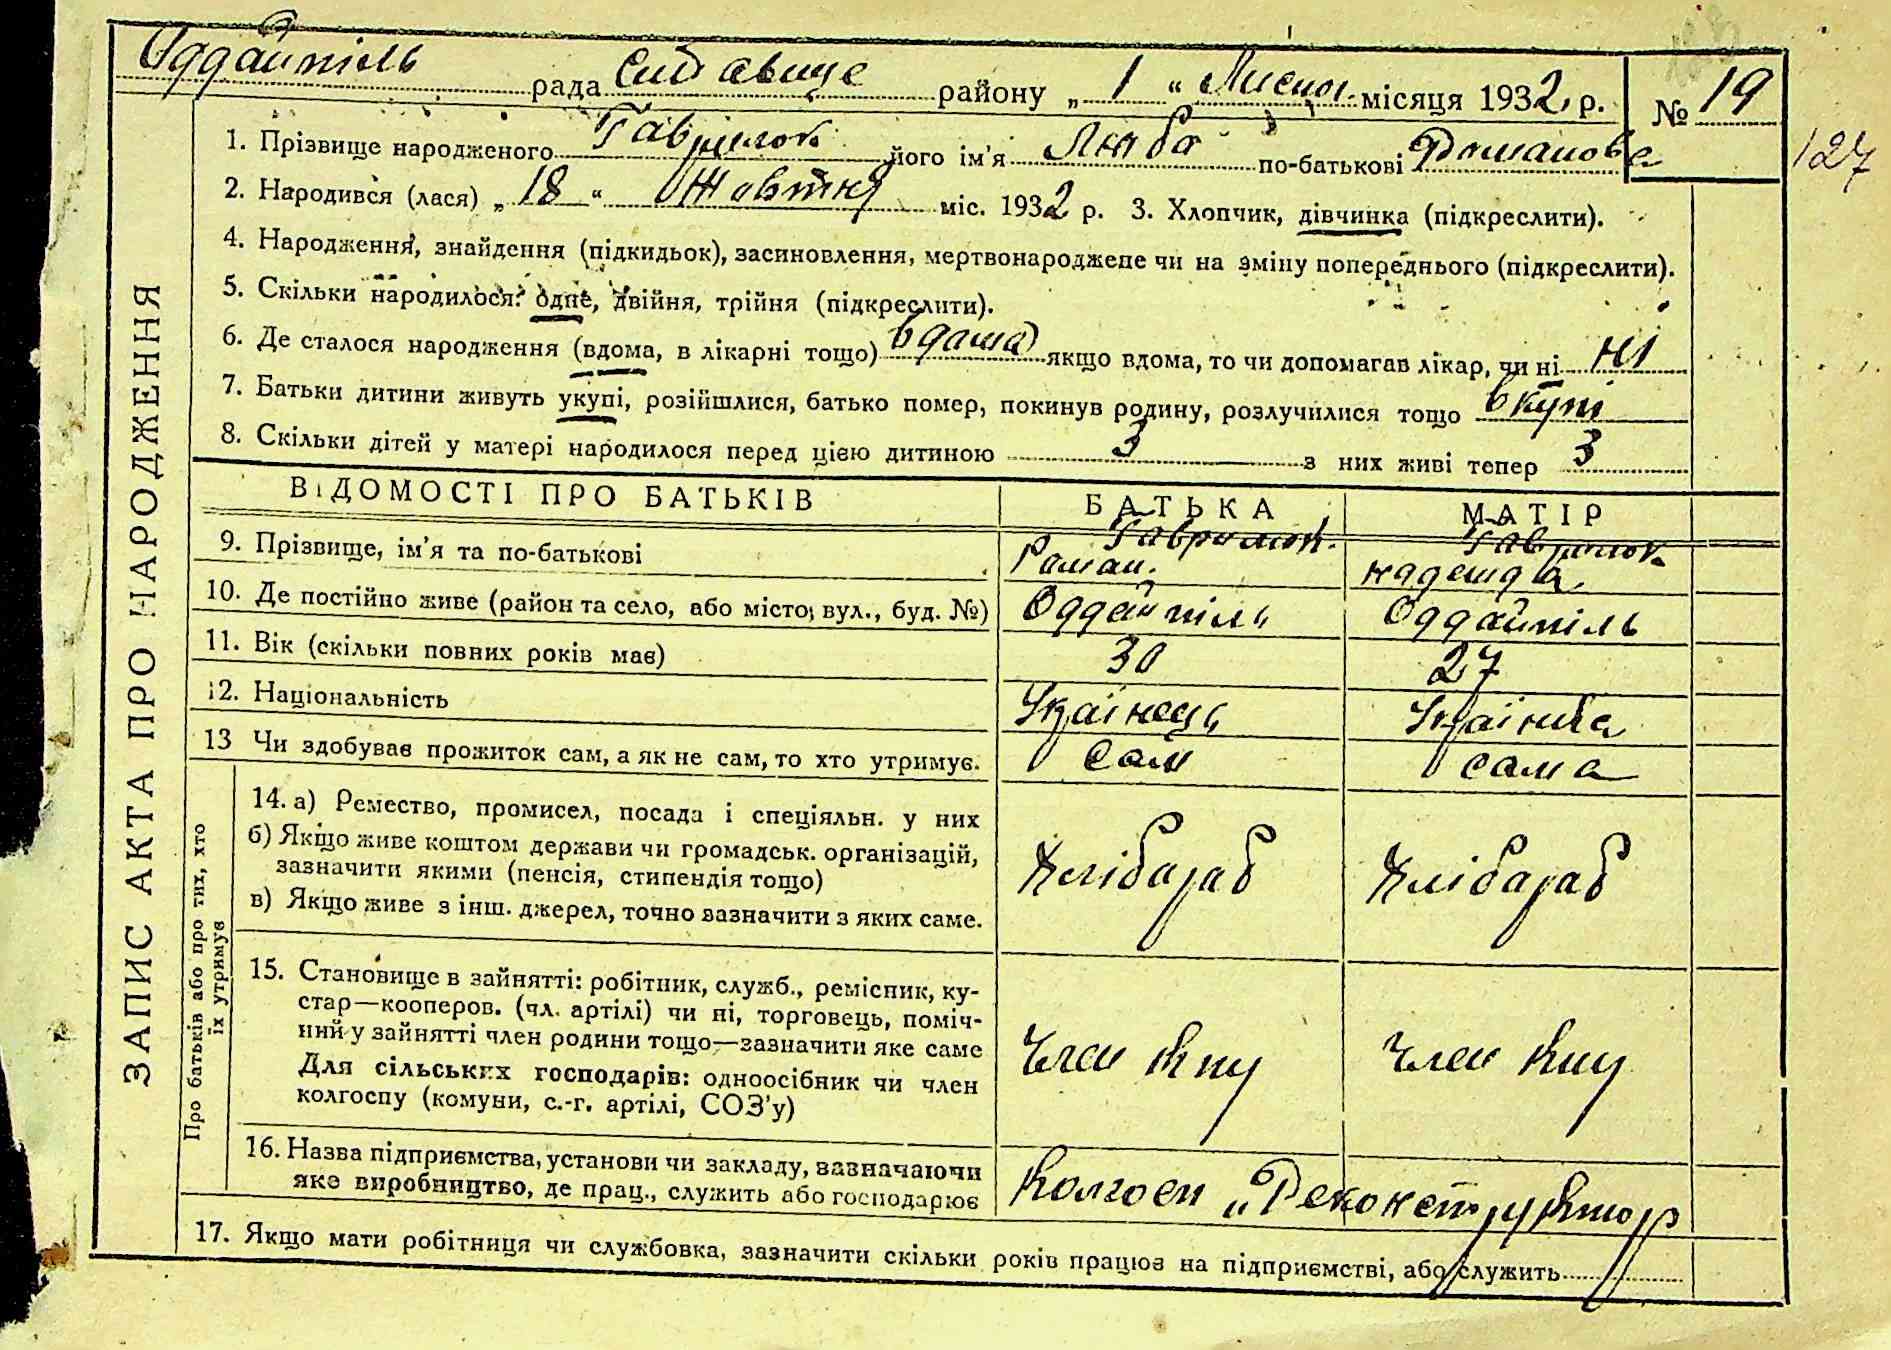 Оддайпіль рада Ставище району „ 1 “ Листоп. місяця 1932 р. № 19
127
1. Прізвище народженого Гаврилюк його ім'я Люба по-батькові Романова
2. Народився (лася) „ 18 “ Жовтня міс. 1932 р. 3. Хлопчик, дівчинка (підкреслити).
4. Народження, знайдення (підкидьок), засиновлення, мертвонароджене чи на зміну попереднього (підкреслити).
5. Скільки народилося: одне, двійня, трійня (підкреслити).
6. Де сталося народження (вдома, в лікарні тощо) вдома якщо вдома, то чи допомагав лікар, чи ні ні
7. Батьки дитини живуть укупі, розійшлися, батько помер, покинув родину, розлучилися тощо вкупі
8. Скільки дітей у матері народилося перед цією дитиною 3 з них живі тепер 3
ЗАПИС АКТА ПРО НАРОДЖЕННЯ
ВІДОМОСТІ ПРО БАТЬКІВ БАТЬКА МАТІР
9. Прізвище, ім'я та по-батькові Гаврилюк Роман. Гаврилюк Надежда
10. Де постійно живе (район та село, або місто, вул., буд. №) Оддайпіль Оддайпіль
11. Вік (скільки повних років має) 30 27
12. Національність Українець Українка
13 Чи здобуває прожиток сам, а як не сам, то хто утримує. Сам сама
Про батьків або про тих, хто
їх утримує
14. а) Ремество, промисел, посада і спеціяльн. у них
б) Якщо живе коштом держави чи громадськ. організацій,
зазначити якими (пенсія, стипендія тощо) Хлібараб Хлібараб
в) Якщо живе з інш. джерел, точно зазначити з яких саме.
15. Становище в зайнятті: робітник, служб., ремісник, ку-
стар—кооперов. (чл. артілі) чи ні, торговець, поміч-
ний у зайнятті член родини тощо—зазначити яке саме Член Член
Для сільських господарів: одноосібник чи член
колгоспу (комуни, с.-г. артілі, СОЗ'у)
16. Назва підприємства, установи чи закладу, зазначаючи
яке виробництво, де прац., служить або господарює Колгосп „Реконструктор
17. Якщо мати робітниця чи службовка, зазначити скільки років працює на підприємстві, або служить